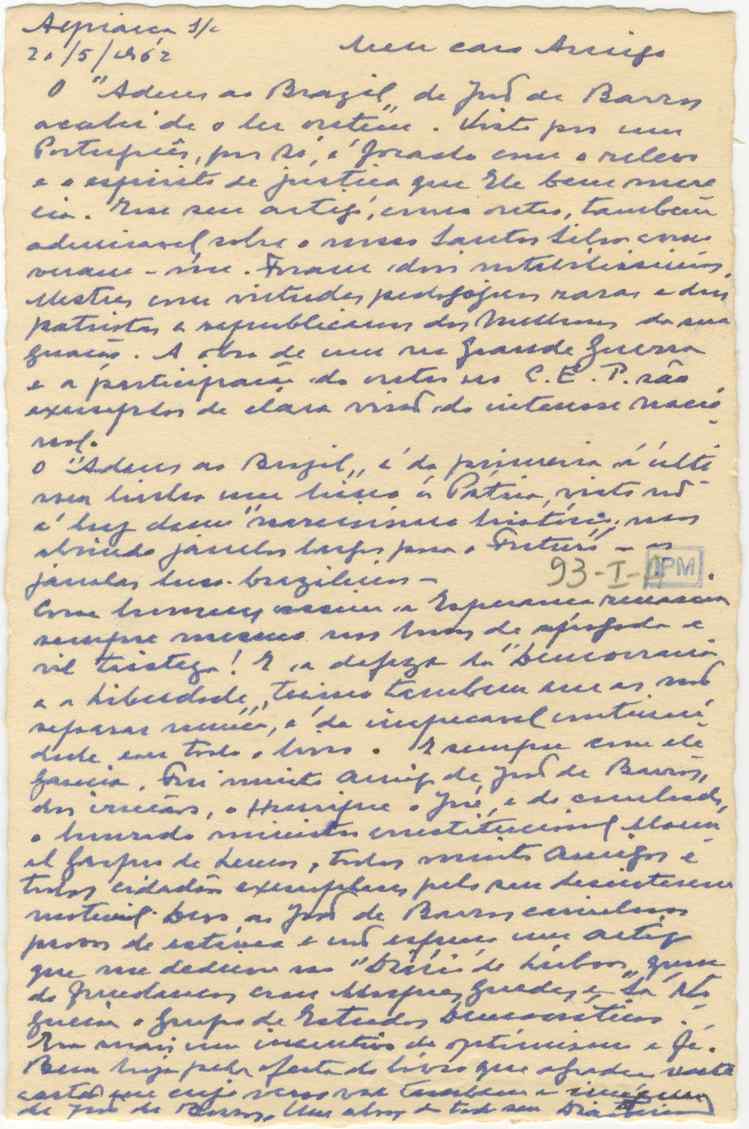 Alpiarça s/c
21/5/1962 Meu caro Amigo
O "Adeus ao Brazil" de João de Barros
acabei de o ler ontem. Visto por um
Português, por Sá, é focado com o relevo
e o espirito de justiça que Ele bem mere
cia. Esse seu artigo, como outro, tambem
admiravel sobre o nosso Santos Silva como
veram-me. Foram dois notabilissimos
Mestres com virtudes pedagógicas raras e dois
patriotas e republicanos dos Melhores da sua
geração. A obra de um na Grande Guerra
e a participação do outro no C. E. P. são
exemplos de clara visão do interesse nacio
nal.
O "Adeus ao Brazil" é da primeira á ulti
ma linha um hino á Patria, visto não
é luz dum "narcisismo histórico, mas
abrindo janelas largas para o Futuro – as
janelas luso-brazileiras –
93-I- IPM
Com homens assim a Esperança renascia
sempre mesmo nas horas de apagada e
vil tristeza! E a defeza da "Democracia
e a Liberdade", termo tambem que as não
separar nunca, é da impecavel continui
dade em todo o livro. E sempre com ele
gancia. Fui muito Amigo de João de Barros,
dos irmãos, o Henrique o José, e do cunhado,
o honrado ministro constitucional Manu
el Gaspar de Lemos, todos muito Amigos e
todos cidadãos exemplares pelo seu desinteresse
material. Devo ao João de Barros carinhosas
provas de estima e não esqueço um artigo
que me dedicou no "Diário de Lisboa", quan
do fundamos com Marques Guedes e Sá No
gueira o Grupo de Estudos Democráticos.
Era mais um incentivo de optimismo e Fé.
Bem haja pela oferta do livro que agradeço neste
cartão em cujo verso vae tambem a
de João de Barros. Um abraço de todo seu